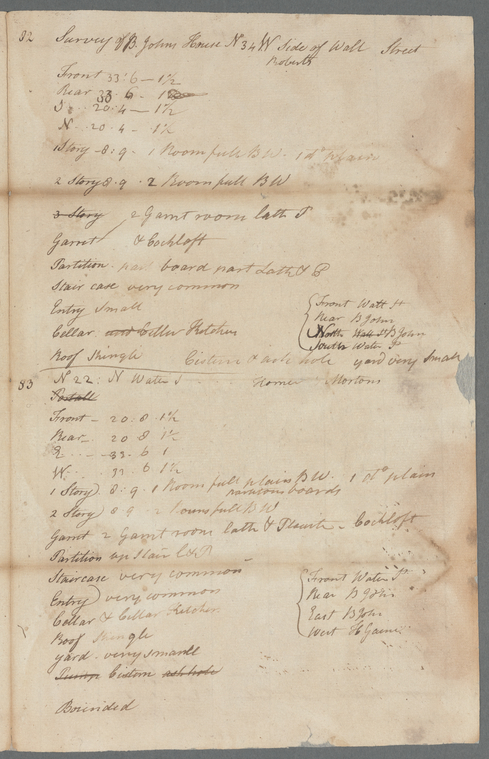 82 Survey of B. Johns House N 34 W Side of Wall Street
Roberts
Front 33 : 6 — 1½
Rear 33 . 6 - 1
S . . 20 . 4 — 1½
N . . 20 . 4 - 1½
1 Story - 8 : 9 - 1 Room full BW . 1 do plain
2 Story 8 . 9 . 2 Room full BW
3 Story 2 Garrt room lath P
Garret & Cockloft
Partition part board part Lath & P
Stair case very common
Entry small
Cellar and Celler Kitchen
Roof Shingle Cistern & ash hole yard very small
Front Wall st
Rear B John
North Wall St B John
South Water S
83 N 22 : N Water S Homer Mortons
Front — 20 : 8 . 1½
Rear — 20 8 1½
E . . — 33 . 6 1
W . . 33 . 6 1½
1 Story 8 : 9 . 1 Room full plain BW . 1 do plain
boards
2 Story 8 9 . 2 rooms full BW
Garrt 2 Garrt room lath & Plaister - Cockloft
Partition up Stair L & P
Staircase very common
Entry very common
Cellar & Cellar Kitchen
Roof Shingle
yard - very small
Pump Cistern ash hole
Front Water S
Rear B John
East B John
West H Gaine
Bounded